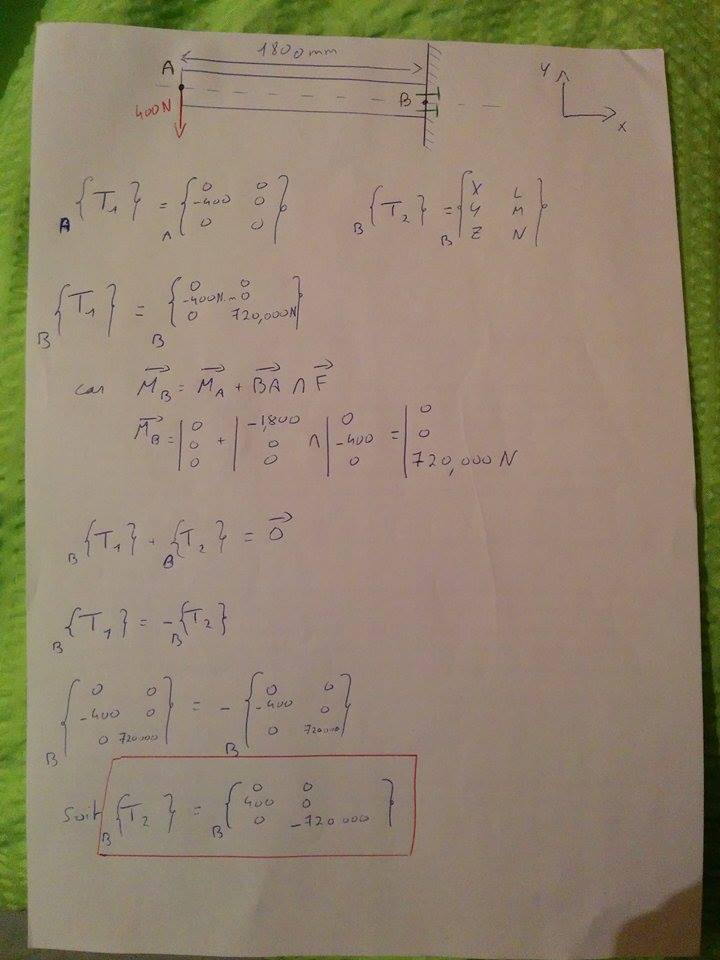 1800mm
A
B
400N
y
x
A{T1} = A{0 0
-400 0
0 0}
B{T2} = B{X L
Y M
Z N}
B{T1} = B{0 0
-400N 0
0 720,000N}
car MB = MA + BA ∧ F
MB = |0 0 0 + |-1,800 0 0 ∧ |0 -400 0 = |0 0 720,000 N
B{T1} + B{T2} = 0
B{T1} = -B{T2}
B{0 0
-400 0
0 720000} = - B{0 0
-400 0
0 720000}
Soit B{T2} = B{0 0
400 0
0 -720000}